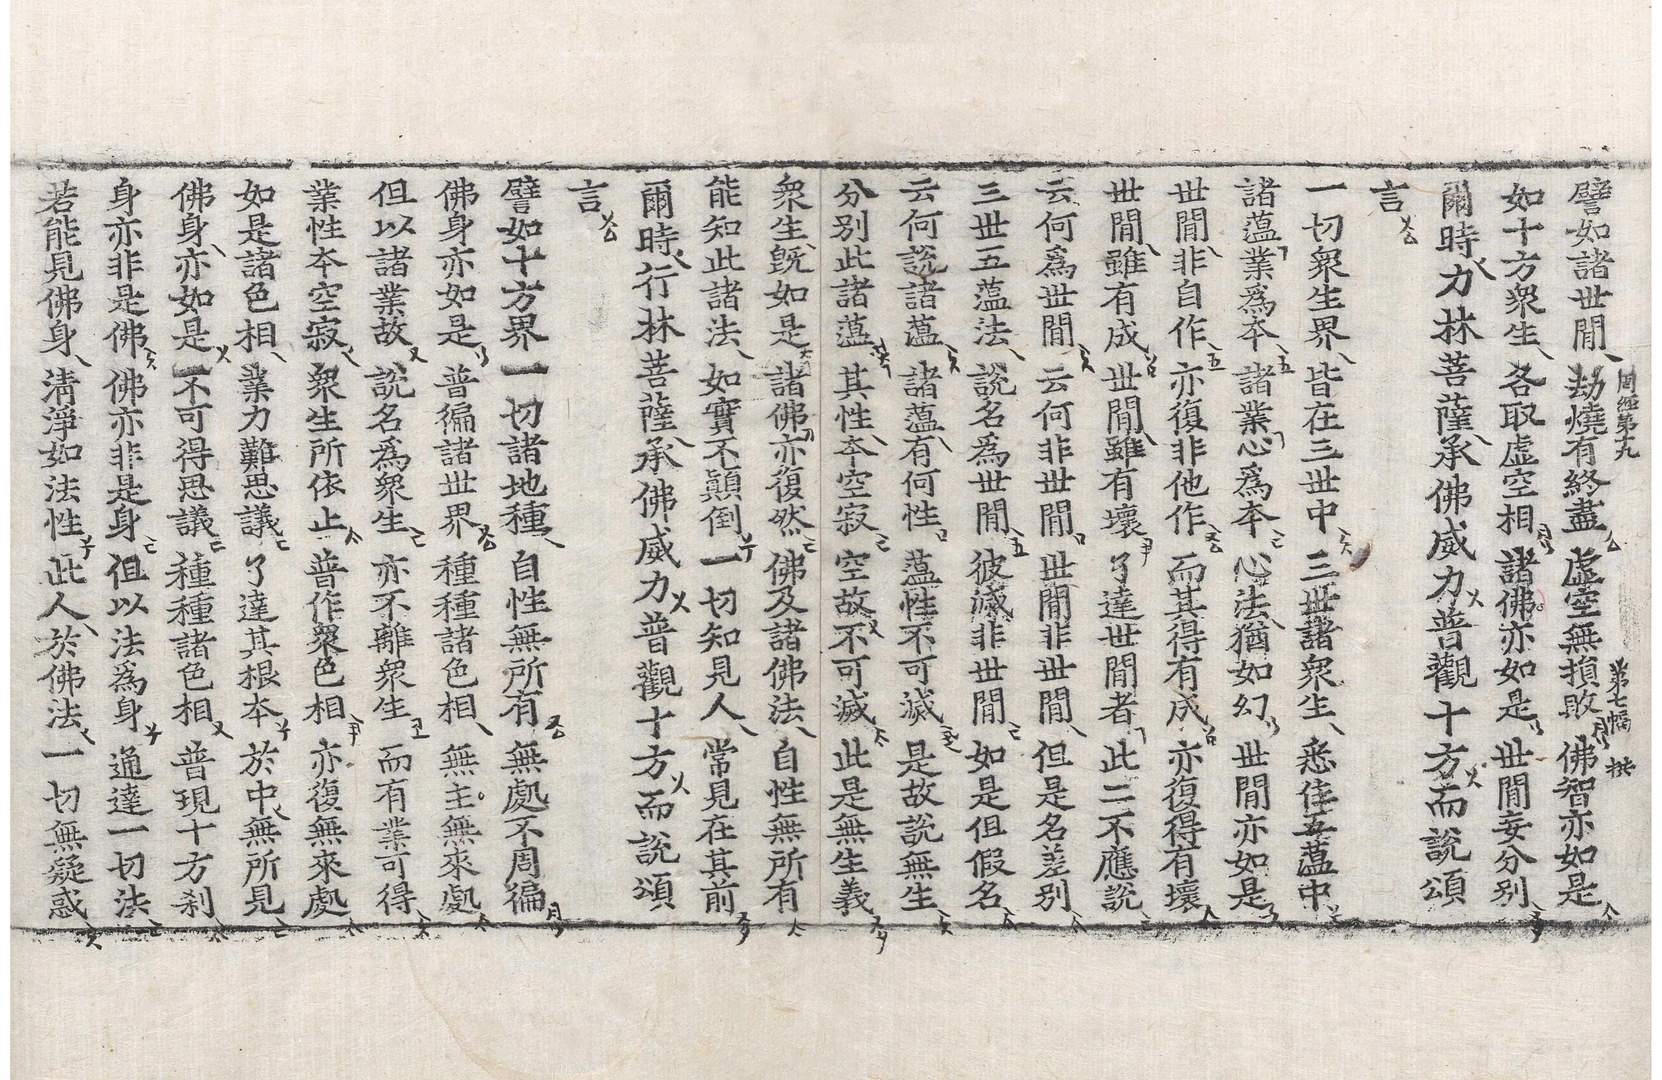 譬如諸世閒 劫燒有終盡 虛空無損敗 佛智亦如是
周經第十九 第七幅
如十方衆生 各取虛空相 諸佛亦如是 世閒妄分別
爾時力林菩薩承佛威力普觀十方而說頌
言
一切衆生界 皆在三世中 三世諸衆生 悉住五蘊中
諸蘊業爲本 諸業心爲本 心法猶如幻 世閒亦如是
世閒非自作 亦復非他作 而其得有成 亦復得有壞
世閒雖有成 世閒雖有壞 了達世閒者 此二不應說
云何爲世閒 云何非世閒 世閒非世閒 但是名差別
三世五蘊法 說名爲世閒 彼滅非世閒 如是但假名
云何說諸蘊 諸蘊有何性 蘊性不可滅 是故說無生
分別此諸蘊 其性本空寂 空故不可滅 此是無生義
衆生旣如是 諸佛亦復然 佛及諸佛法 自性無所有
能知此諸法 如實不顚倒 一切知見人 常見在其前
爾時行林菩薩承佛威力普觀十方而說頌
言
譬如十方界 一切諸地種 自性無所有 無處不周徧
佛身亦如是 普徧諸世界 種種諸色相 無主無來處
但以諸業故 說名爲衆生 亦不離衆生 而有業可得
業性本空寂 衆生所依止 普作衆色相 亦復無來處
如是諸色相 業力難思議 了達其根本 於中無所見
佛身亦如是 不可得思議 種種諸色相 普現十方刹
身亦非是佛 佛亦非是身 但以法爲身 通達一切法
若能見佛身 淸淨如法性 此人於佛法 一切無疑惑